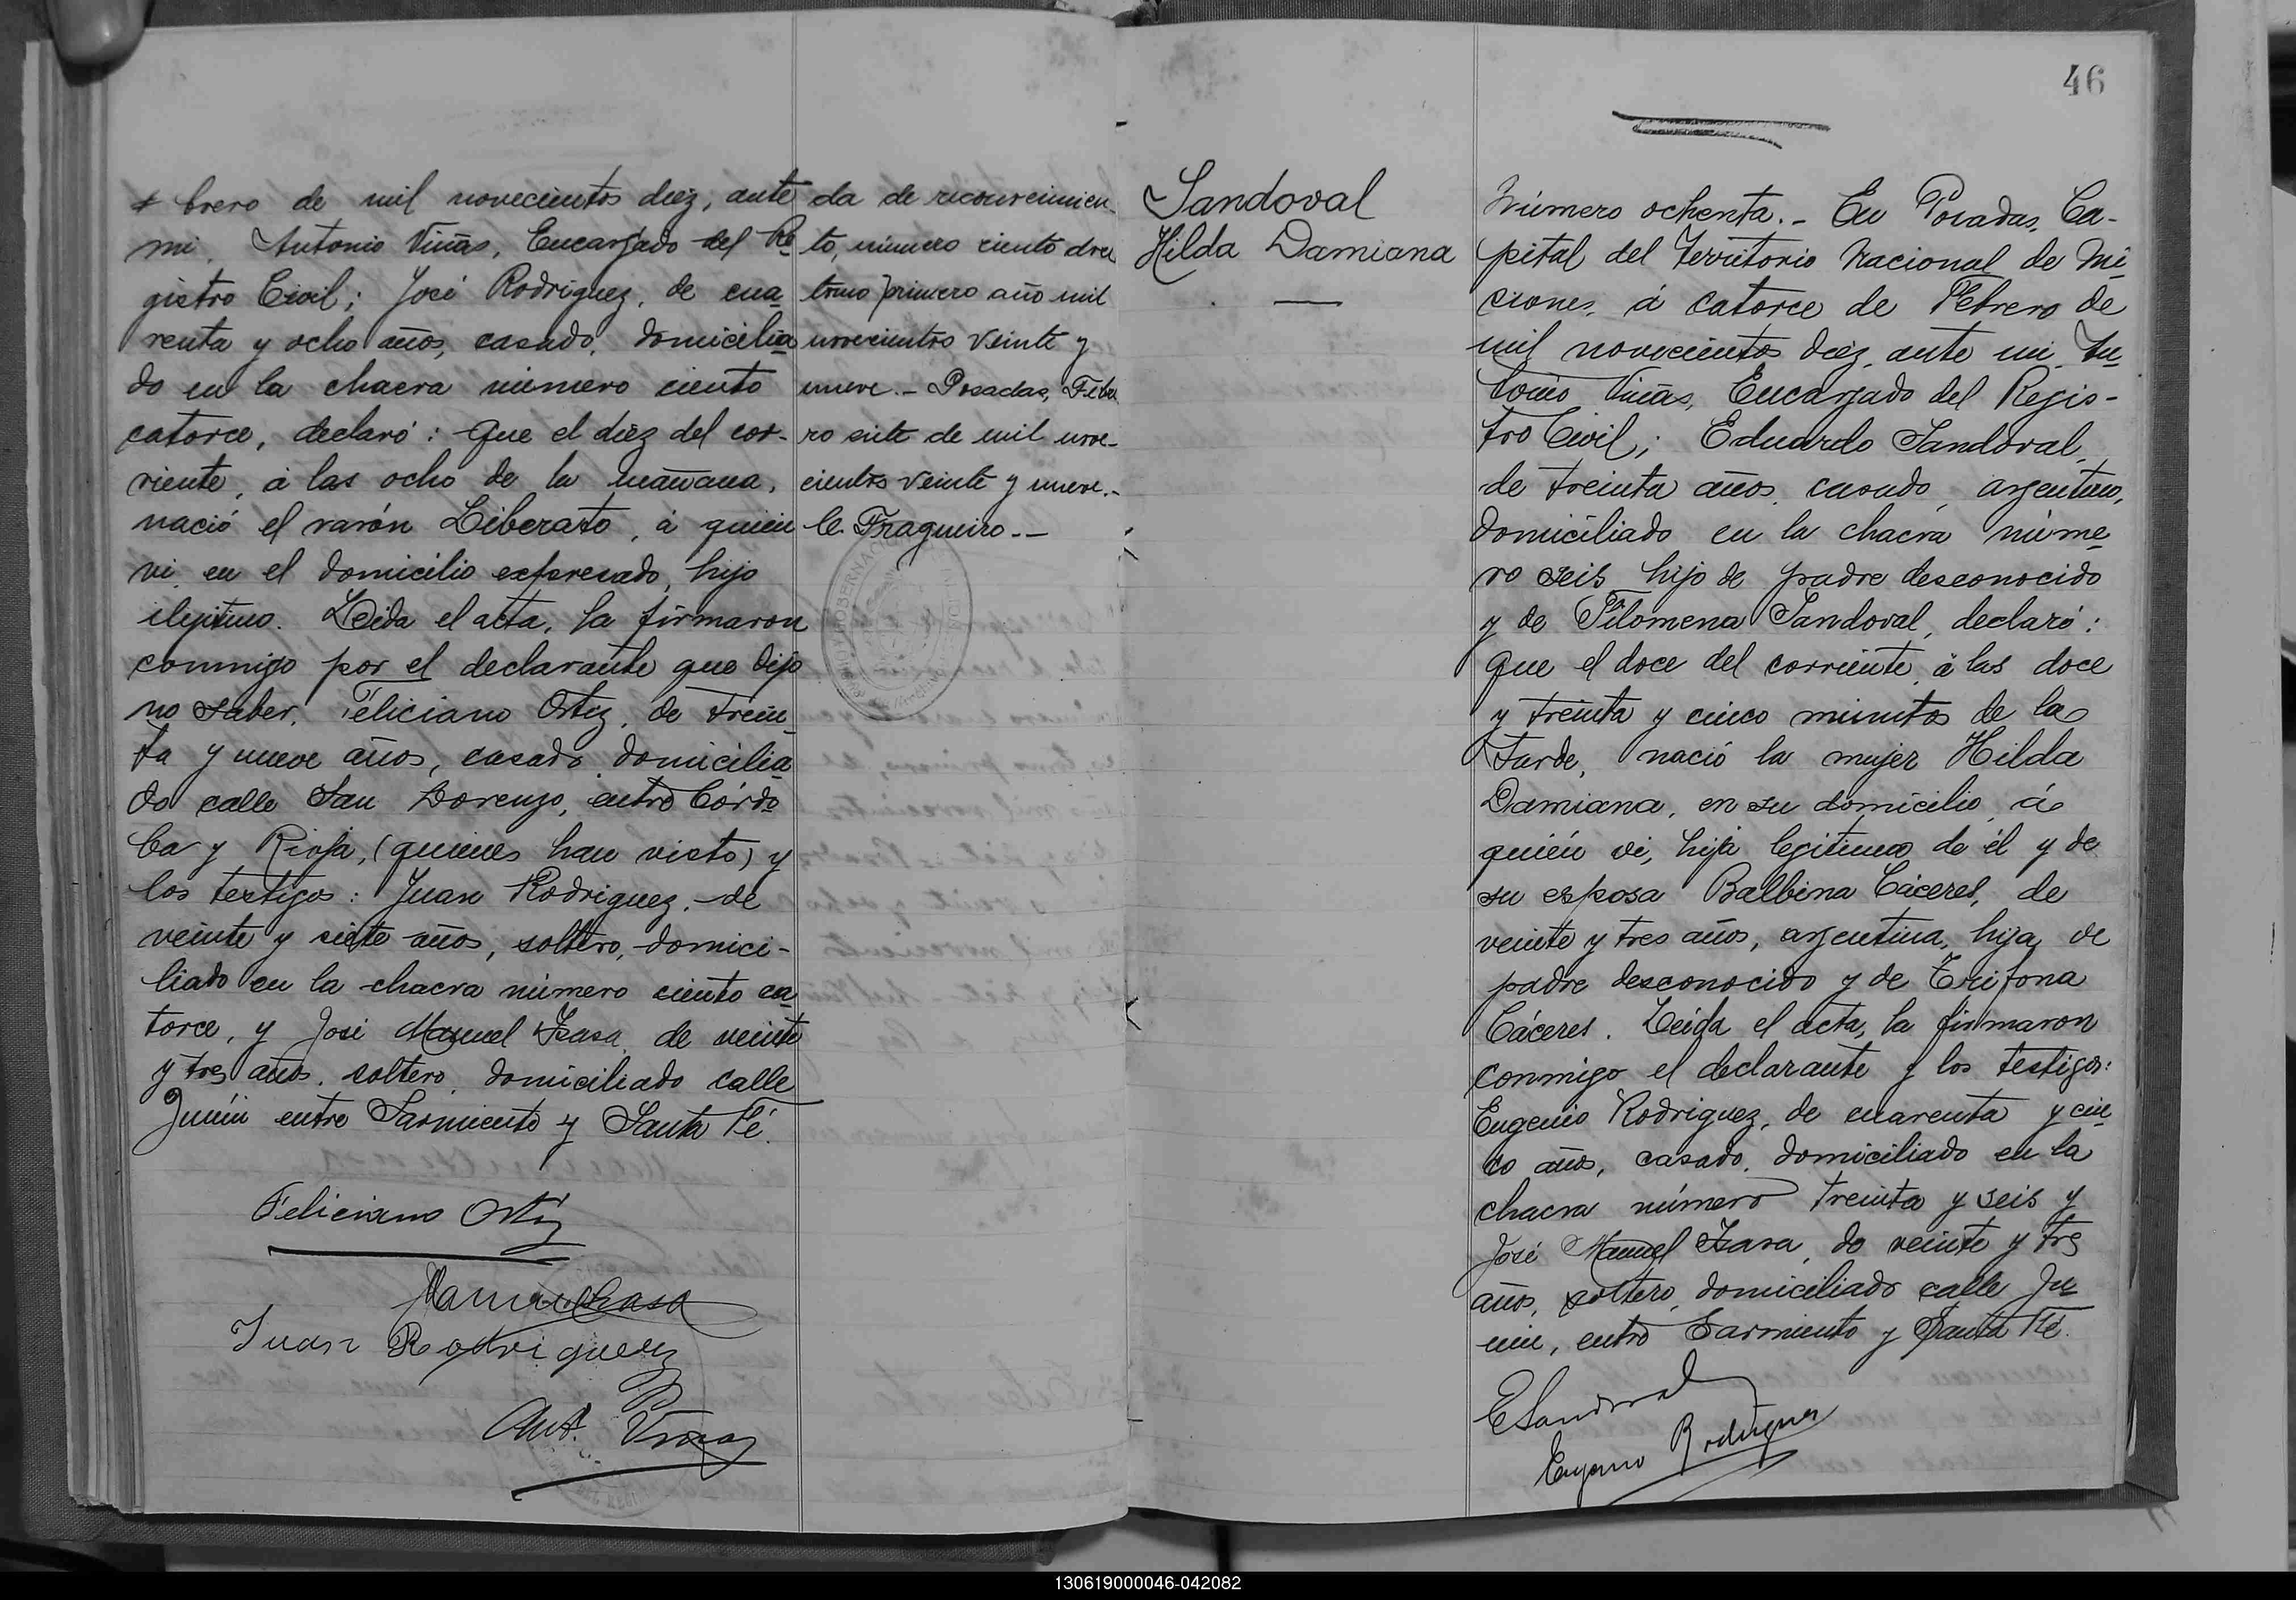 brero de mil novecientos diez, ante
mi, Antonio Viñas, Encargado del Re
gistro Civil; José Rodriguez, de cua
renta y ocho años, casado, domicilia
do en la chacra número ciento
catorce, declaró: Que el diez del cor-
riente, á las ocho de la mañana,
nació el varón Liberato, á quien
vi en el domicilio expresado, hijo
ilejitimo. Leida el acta, la firmaron
conmigo por el declarante que dijo
no saber, Feliciano Ortiz, de trein
ta y nueve años, casado, domicilia
do calle San Lorenzo, entre Córdo
ba y Rioja, (quienes han visto) y
los testigos: Juan Rodriguez, de
veinte y siete años, soltero, domici-
liado en la chacra número ciento ca
torce, y José Manuel Isasa, de veinte
y tres años, soltero, domiciliado calle
Junin entre Sarmiento y Santa Fé.
Feliciano Ortiz
Manuel Isasa
Juan Rodriguez
Ant. Viñas
da de reconocimien-
to, número ciento dos
tomo primero año mil
novecientos veinte y
nueve.- Posadas, Febre
ro siete de mil nove-
cientos veinte y nueve.-
C. Fragueiro.--
Sandoval
Hilda Damiana
46
Número ochenta.- En Posadas, Ca-
pital del Territorio Nacional de Mi
siones, á catorce de Febrero de
mil novecientos diez, ante mi, An
tonio Viñas, Encargado del Regis-
tro Civil; Eduardo Sandoval,
de treinta años, casado, argentino,
domiciliado en la chacra núme
ro seis, hijo de padre desconocido
y de Filomena Sandoval, declaró:
Que el doce del corriente, á las doce
y treinta y cinco minutos de la
tarde, nació la mujer Hilda
Damiana, en su domicilio, á
quién vi, hija legitima de él y de
su esposa Balbina Cáceres, de
veinte y tres años, argentina, hija de
padre desconocido y de Trifona
Cáceres. Leida el acta, la firmaron
conmigo el declarante y los testigos:
Eugenio Rodriguez, de cuarenta y cin
co años, casado, domiciliado en la
chacra número treinta y seis y
José Manuel Isasa, de veinte y tres
años, soltero, domiciliado calle Ju
nin, entre Sarmiento y Santa Fé.
E Sandoval
Eugenio Rodriguez
130619000046-042082